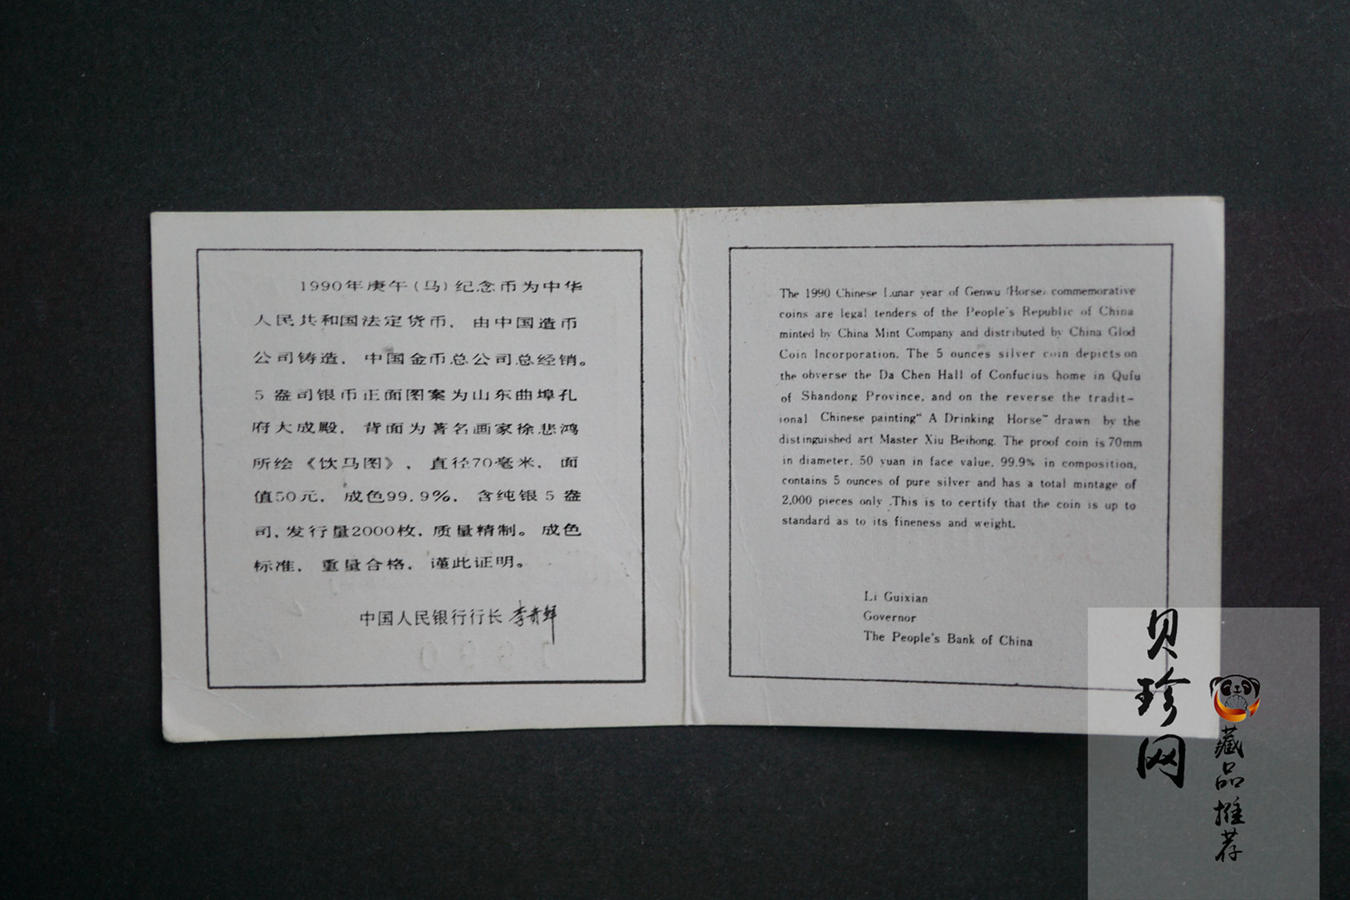 1990年庚午(马)纪念币为中华
人民共和国法定货币，由中国造币
公司铸造，中国金币总公司总经销。
5盎司银币正面图案为山东曲埠孔
府大成殿，背面为著名画家徐悲鸿
所绘《饮马图》，直径70毫米，面
值50元，成色99.9%，含纯银5盎
司,发行量2000枚，质量精制。成色
标准，重量合格，谨此证明。
中国人民银行行长 李贵鲜
The 1990 Chinese Lunar year of Genwu (Horse) commemorative
coins are legal tenders of the People's Republic of China
minted by China Mint Company and distributed by China Glod
Coin Incorporation. The 5 ounces silver coin depicts on
the obverse the Da Chen Hall of Confucius home in Qufu
of Shandong Province, and on the reverse the tradit-
ional Chinese painting" A Drinking Horse" drawn by the
distinguished art Master Xiu Beihong. The proof coin is 70mm
in diameter, 50 yuan in face value, 99.9% in composition,
contains 5 ounces of pure silver and has a total mintage of
2,000 pieces only .This is to certify that the coin is up to
standard as to its fineness and weight.
Li Guixian
Governor
The People's Bank of China
贝珍网
藏品推荐